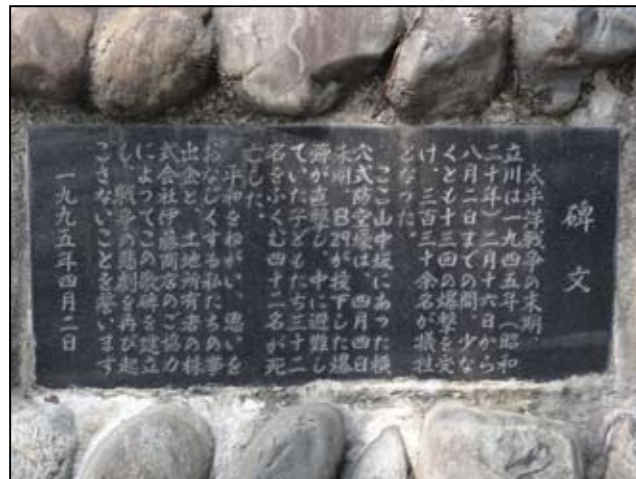 碑文
太平洋戦争の末期、
立川は一九四五年（昭和
二十年）二月十六日から
八月二日までの間、少な
くとも十三回の爆撃を受
け、三百三十余名が犠牲
となった。
ここ山中坂にあった横
穴式防空壕は、四月四日
未明、B29が投下した爆
弾が直撃し、中に避難し
ていた子どもたち三十二
名をふくむ四十二名が死
亡した。
平和をねがい、思いを
おなじくする私たちの募
出金と、土地所有者の株
式会社伊藤商店のご協力
によってこの歌碑を建立
し、戦争の悲劇を再び起
こさないことを誓います
一九九五年四月二日